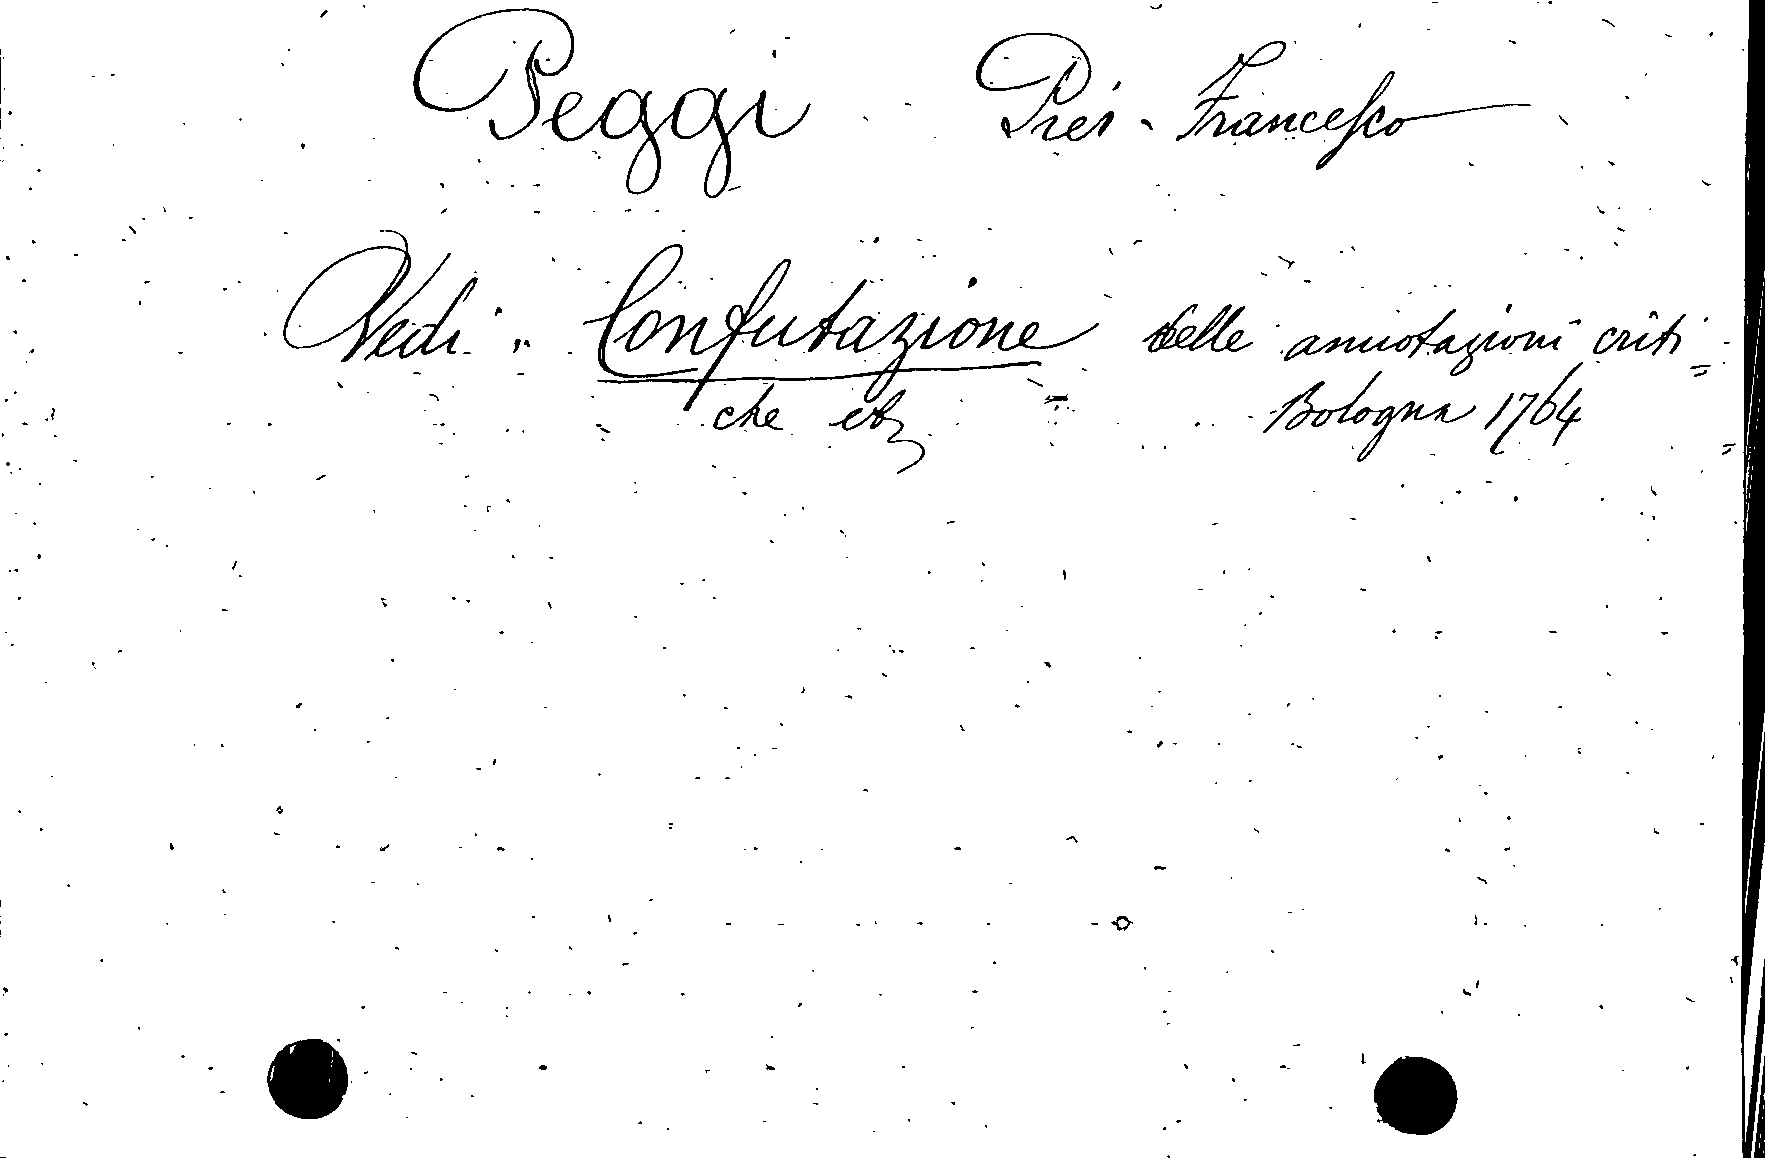 Peggi Pier-Francesco
Vedi: Confutazione delle annotazioni criti=
che etc = Bologna 1764